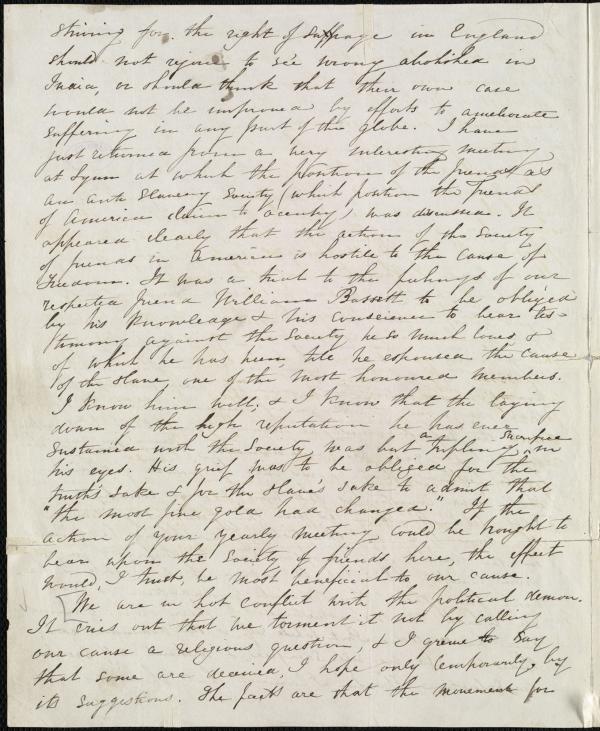 striving for the right of suffrage in England
should not rejoice to see wrong abolished in
India, or should think that their own case
would not be improved by efforts to ameliorate
suffering in any part of the globe. I have
just returned from a very interesting meeting
at Lynn at which the position of the friends as
an anti slavery Society (which position the friends
of America claim to occupy) was discussed. It
appeared clearly that the action of the Society
of friends in America is hostile to the cause of
Freedom. It was a trial to the feelings of our
respected friend William Bassett to be obliged
by his knowledge & his conscience to bear tes-
timony against the Society he so much loves, &
of which he has been, till he espoused the cause
of the slave, one of the most honoured members.
I know him well, & I know that the laying
down of the high reputation he has ever
sustained with the Society was but a trifling sacrifice in
his eyes. His grief was to be obliged for the
truth's sake & for the slave's sake to admit that
"the most fine gold had changed." If the
action of your yearly meeting could be brought to
bear upon the Society of friends here, the effect
would, I trust, be most beneficial to our cause.
[We are in hot conflict with the political demon.
It cries out that we torment it not by calling
our cause a religious question, & I grieve to say
that some are deceived, I hope only temporarily, by
its suggestions. The facts are that the movement for